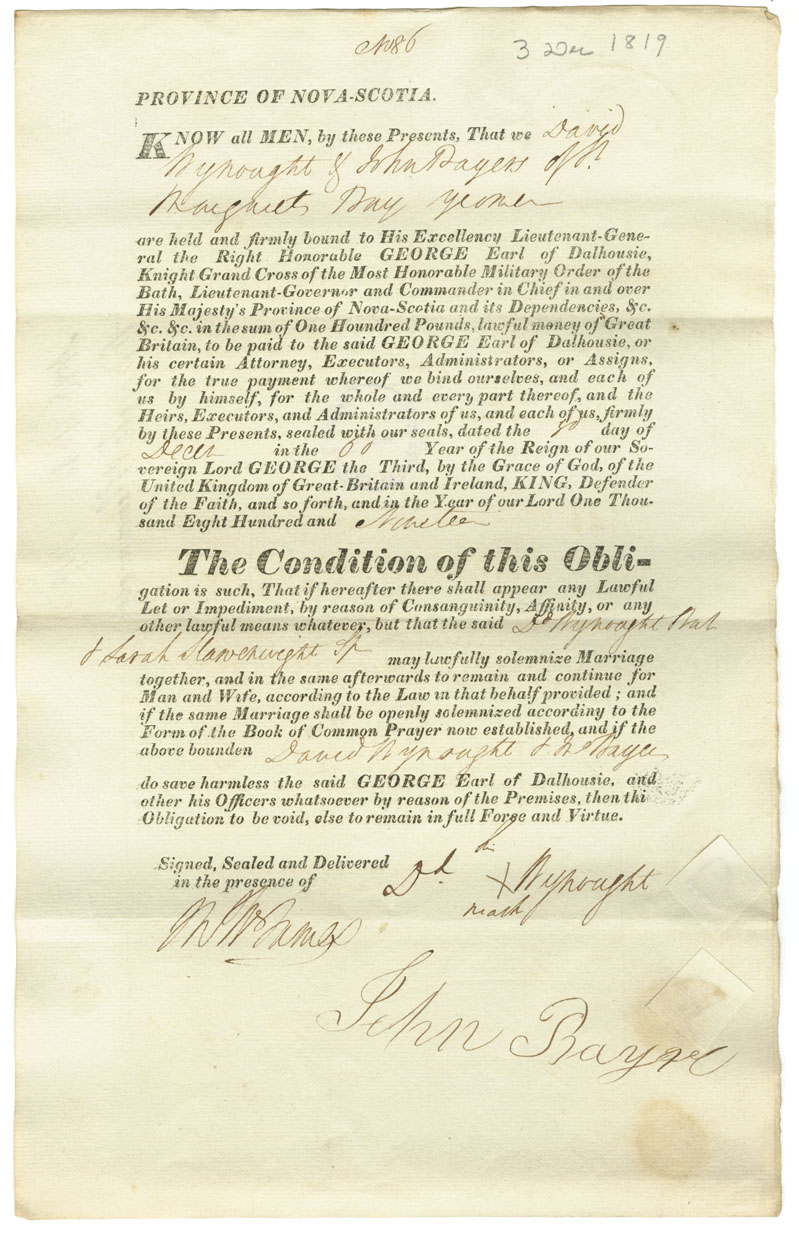 No 86
3 Dec 1819
PROVINCE OF NOVA-SCOTIA.
KNOW all MEN, by these Presents, That we David
Wynought & John Bayers of St.
Margarets Bay yeomen
are held and firmly bound to His Excellency Lieutenant-Gene-
ral the Right Honorable GEORGE Earl of Dalhousie,
Knight Grand Cross of the Most Honorable Military Order of the
Bath, Lieutenant-Governor and Commander in Chief in and over
His Majesty's Province of Nova-Scotia and its Dependencies, &c.
&c. &c. in the sum of One Houndred Pounds, lawful money of Great
Britain, to be paid to the said GEORGE Earl of Dalhousie, or
his certain Attorney, Executors, Administrators, or Assigns,
for the true payment whereof we bind ourselves, and each of
us by himself, for the whole and every part thereof, and the
Heirs, Executors, and Administrators of us, and each of us, firmly
by these Presents, sealed with our seals, dated the day of
Decer in the 60 Year of the Reign of our So-
vereign Lord GEORGE the Third, by the Grace of God, of the
United Kingdom of Great-Britain and Ireland, KING, Defender
of the Faith, and so forth, and in the Year of our Lord One Thou-
sand Eight Hundred and Nineteen
The Condition of this Obli-
gation is such, That if hereafter there shall appear any Lawful
Let or Impediment, by reason of Consanguinity, Affinity, or any
other lawful means whatever, but that the said Dd Wynought Bat
& Sarah Slawenwight Sp may lawfully solemnize Marriage
together, and in the same afterwards to remain and continue for
Man and Wife, according to the Law in that behalf provided ; and
if the same Marriage shall be openly solemnized accordiny to the
Form of the Book of Common Prayer now established, and if the
above bounden David Wynought & Jn Bayer
do save harmless the said GEORGE Earl of Dalhousie, and
other his Officers whatsoever by reason of the Premises, then thi
Obligation to be void, else to remain in full Force and Virtue.
Signed, Sealed and Delivered
in the presence of
his
Dd X Wynought
mark
John Bayer